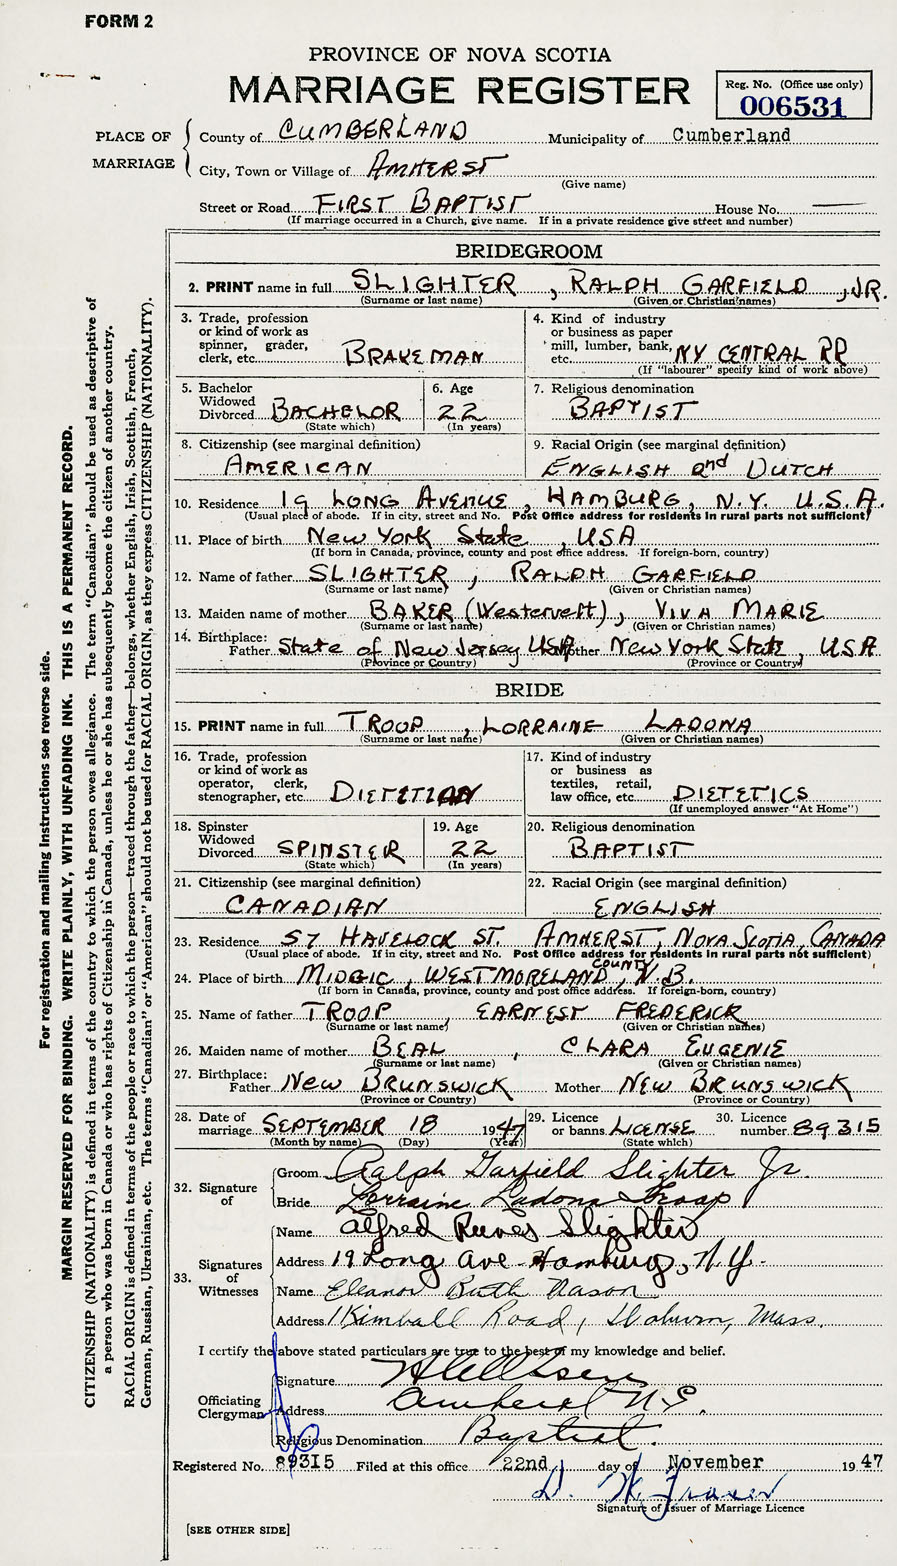 FORM 2
PROVINCE OF NOVA SCOTIA
MARRIAGE REGISTER
Reg. No. (Office use only)
006531
PLACE OF MARRIAGE
County of CUMBERLAND Municipality of Cumberland
City, Town or Village of AMHERST
(Give name)
Street or Road FIRST BAPTIST House No.
(If marriage occurred in a Church, give name. If in a private residence give street and number)
BRIDEGROOM
2. PRINT name in full SLIGHTER, RALPH GARFIELD, JR.
(Surname or last name) (Given or Christian names)
3. Trade, profession
or kind of work as
spinner, grader,
clerk, etc. BRAKEMAN
4. Kind of industry
or business as paper
mill, lumber, bank,
etc. NY CENTRAL RR
(If "labourer" specify kind of work above)
5. Bachelor
Widowed
Divorced BACHELOR
(State which)
6. Age
22
(In years)
7. Religious denomination
BAPTIST
8. Citizenship (see marginal definition)
AMERICAN
9. Racial Origin (see marginal definition)
ENGLISH and DUTCH
10. Residence 19 LONG AVENUE, HAMBURG, N.Y. U.S.A.
(Usual place of abode. If in city, street and No. Post Office address for residents in rural parts not sufficient)
11. Place of birth New York State, USA
(If born in Canada, province, county and post office address. If foreign-born, country)
12. Name of father SLIGHTER, RALPH GARFIELD
(Surname or last name) (Given or Christian names)
13. Maiden name of mother BAKER (Westervelt), VIVA MARIE
(Surname or last name) (Given or Christian names)
14. Birthplace:
Father State of New Jersey USA Mother New York State, USA
(Province or Country) (Province or Country)
BRIDE
15. PRINT name in full TROOP, LORRAINE LADONA
(Surname or last name) (Given or Christian names)
16. Trade, profession
or kind of work as
operator, clerk,
stenographer, etc. DIETITIAN
17. Kind of industry
or business as
textiles, retail,
law office, etc. DIETETICS
(If unemployed answer "At Home")
18. Spinster
Widowed
Divorced SPINSTER
(State which)
19. Age
22
(In years)
20. Religious denomination
BAPTIST
21. Citizenship (see marginal definition)
CANADIAN
22. Racial Origin (see marginal definition)
ENGLISH
23. Residence 57 HAVELOCK ST. AMHERST, NOVA SCOTIA, CANADA
(Usual place of abode. If in city, street and No. Post Office address for residents in rural parts not sufficient)
24. Place of birth MIDGIC, WESTMORELAND COUNTY, N.B.
(If born in Canada, province, county and post office address. If foreign-born, country)
25. Name of father TROOP, EARNEST FREDERICK
(Surname or last name) (Given or Christian names)
26. Maiden name of mother BEAL, CLARA EUGENIE
(Surname or last name) (Given or Christian names)
27. Birthplace:
Father NEW BRUNSWICK Mother NEW BRUNSWICK
(Province or Country) (Province or Country)
28. Date of
marriage SEPTEMBER 18 1947
(Month by name) (Day) (Year)
29. Licence
or banns LICENSE
(State which)
30. Licence
number 89315
32. Signature of
Groom Ralph Garfield Slighter Jr.
Bride Lorraine Ladona Troop
33. Signatures of Witnesses
Name Alfred Reeves Slighter
Address 19 Long Ave Hamburg, N.Y.
Name Eleanor Ruth Nason
Address 1 Kimball Road, Woburn, Mass.
I certify the above stated particulars are true to the best of my knowledge and belief.
Officiating Clergyman
Signature
Address Amherst N.S.
Religious Denomination Baptist.
Registered No. 89315 Filed at this office 22nd day of November 1947
D. W. Fraser
Signature of Issuer of Marriage Licence
[SEE OTHER SIDE]
For registration and mailing instructions see reverse side.
MARGIN RESERVED FOR BINDING. WRITE PLAINLY, WITH UNFADING INK. THIS IS A PERMANENT RECORD.
CITIZENSHIP (NATIONALITY) is defined in terms of the country to which the person owes allegiance. The term "Canadian" should be used as descriptive of
a person who was born in Canada or who has rights of Citizenship in Canada, unless he or she has subsequently become the citizen of another country.
RACIAL ORIGIN is defined in terms of the people or race to which the person—traced through the father—belongs, whether English, Irish, Scottish, French,
German, Russian, Ukrainian, etc. The terms "Canadian" or "American" should not be used for RACIAL ORIGIN, as they express CITIZENSHIP (NATIONALITY).